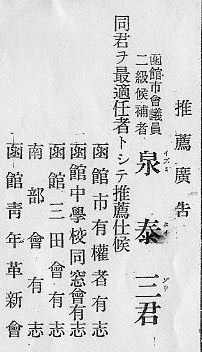 推薦廣告
函館市會議員
二級候補者
泉泰三君
イズミ タイ ゾウ
同君ヲ最適任者トシテ推薦仕候
函館市有權者有志
函館中學校同窓會有志
函館三田會有志
南部會有志
函館靑年革新會